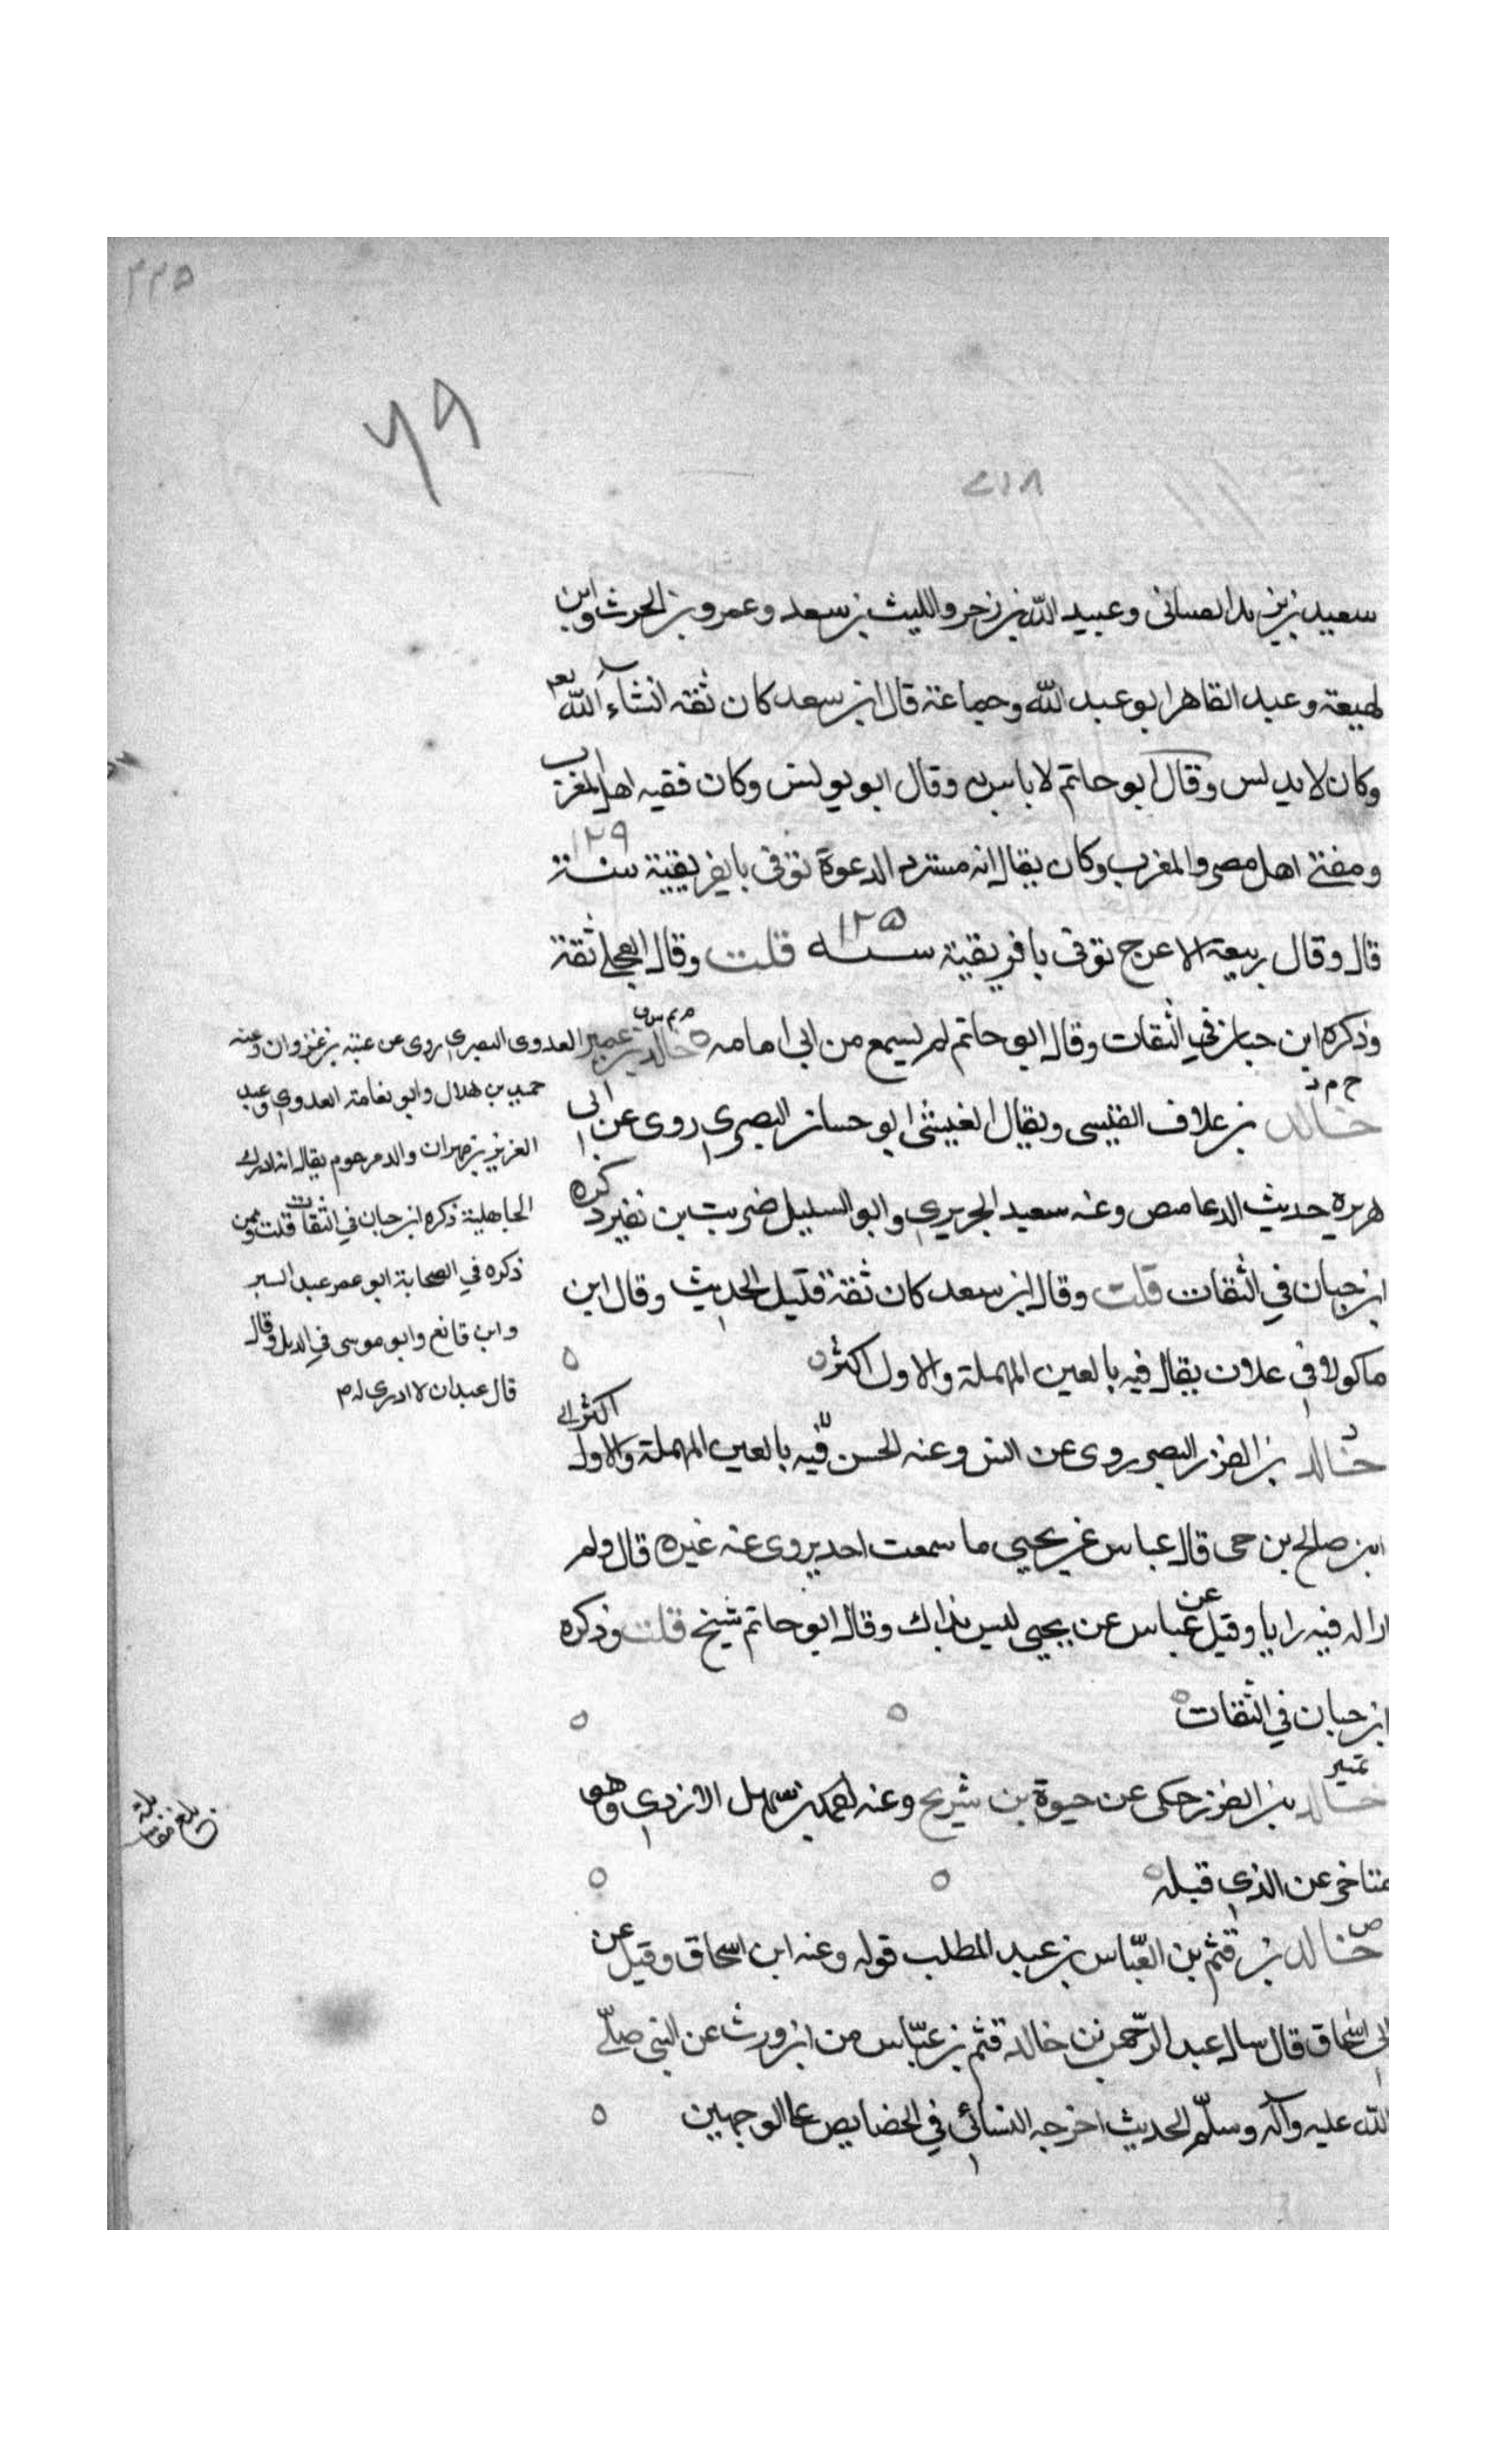 ٢٢٥
٦٩
٢١٨
سعيد بن يزيد الغسانى وعبيد الله بن زحر والليث بن سعد وعمرو بن الحرث وابن
لهيعة وعبد القاهر ابو عبد الله وجماعة قال ابن سعد كان ثقة انشآء الله تعم
وكان لا يدلس وقال ابو حاتم لا باس به وقال ابو يونس وكان فقيه اهل المغرب
ومفتى اهل مصر والمغرب وكان يقال انه مستجاب الدعوة توفى بافريقية سنة ١٢٩
قال وقال ربيعة الاعرج توفى بافريقية سنه ١٢٥ قلت وقال العجلى ثقة
وذكره ابن حبان في الثقات وقال ابو حاتم لم يسمع من ابى امامه
خالد بن عمير العدوى البصرى روى عن عتبة بن غزوان وعنه
حميد بن هلال وابو نعامة العدوى وعبد
العزيز بن مهران والد مرحوم يقال انه ادرك
الجاهلية ذكره ابن حبان في الثقات قلت وممن
ذكره في الصحابة ابو عمر عبد البر
وابن قانع وابو موسى في الديل وقال
قال عبدان لا ادرى له م
خ م د
خالد بن علاق القيسى ويقال العيشى ابو حسان البصرى روى عن ابى
هريرة حديث الدعاميص وعنه سعيد الجريرى وابو السليل ضريب بن نفير ذكره
ابن حبان في الثقات قلت وقال ابن سعد كان ثقة قليل الحديث وقال ابن
ماكولا فى علاق يقال فيه بالعين المهملة والاول اكثر
د
خالد بن الفزر البصرى روى عن انس وعنه الحسن فيه بالعين المهملة والاول اكثر
ابن صالح بن حى قال عباس عن يحيى ما سمعت احد يروى عنه غيره قال ولم
ار اله فيه رايا وقيل عن عباس عن يحيى ليس بذاك وقال ابو حاتم شيخ قلت وذكره
ابن حبان في الثقات
تمييز
خالد بن الفزر حكى عن حيوة بن شريح وعنه سهل الازدى وهو
متاخر عن الذى قبله
ص
خالد بن قثم بن العبّاس بن عبد المطلب قوله وعنه ابن اسحاق وقيل عن
ابى اسحاق قال سال عبد الرّحمن بن خالد قثم بن عبّاس من اين ورث عن النبى صلّى
الله عليه وآله وسلّم الحديث اخرجه النسائى في الخصايص على الوجهين
بلغ مقابلة